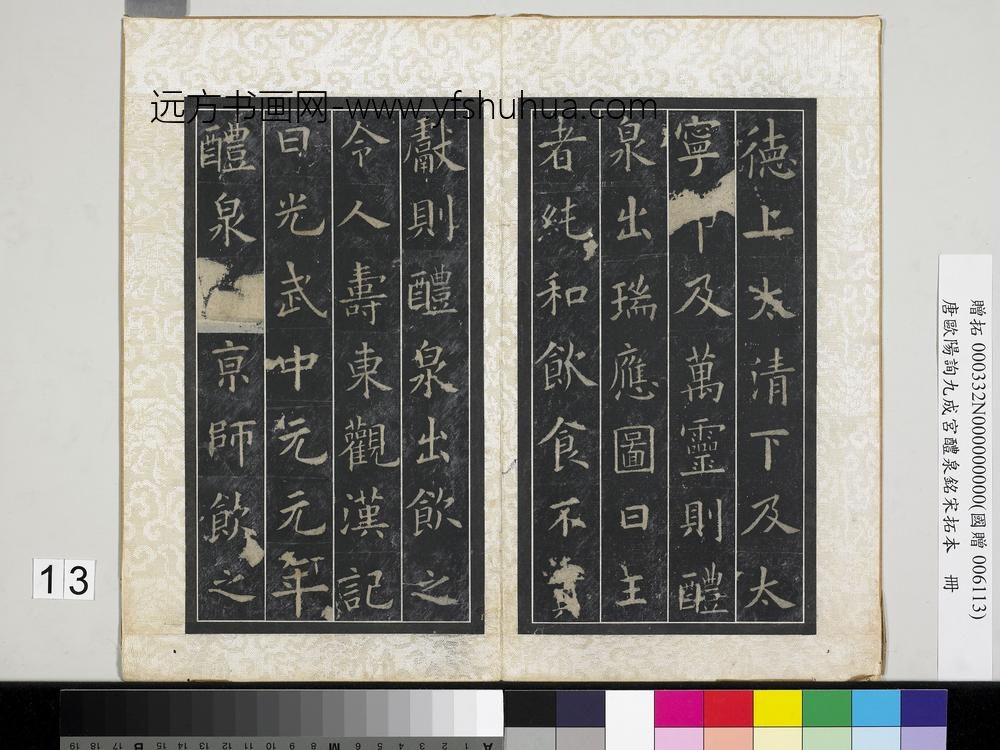 远方书画网-www.yfshuhua.com
德上太清下及太
寧下及萬靈則醴
泉出瑞應圖曰王
者純和飲食不貢
獻則醴泉出飲之
令人壽東觀漢記
曰光武中元元年
醴泉京師飲之
贈拓 000332N000000000(國贈 006113)
唐歐陽詢九成宮醴泉銘宋拓本 冊
13
19 18 17 16 15 14 13 12 11 10 9 8 7 6 5 4 3 2 1
B M A